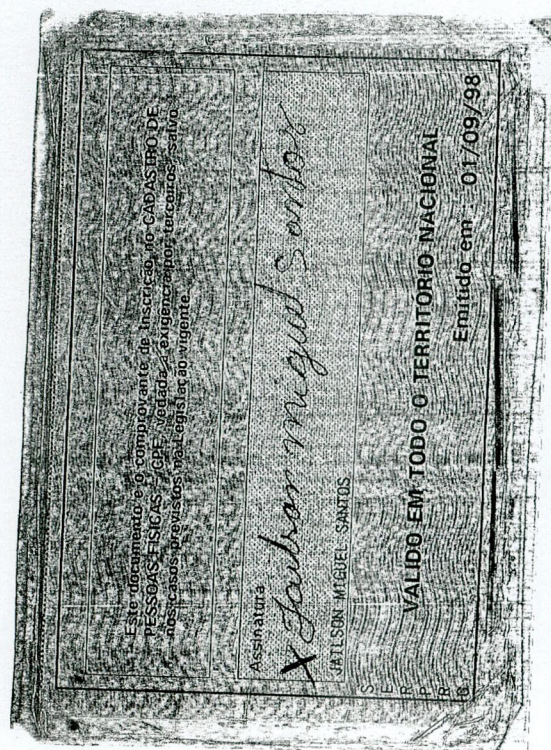 Este documento é o comprovante de Inscrição no CADASTRO DE
PESSOAS FÍSICAS - CPF, vedada a exigência por terceiros, salvo
nos casos previstos na Legislação vigente.
Assinatura
X Jailson Miguel Santos
JAILSON MIGUEL SANTOS
SERPRO
VALIDO EM TODO O TERRITORIO NACIONAL
Emitido em : 01/09/98